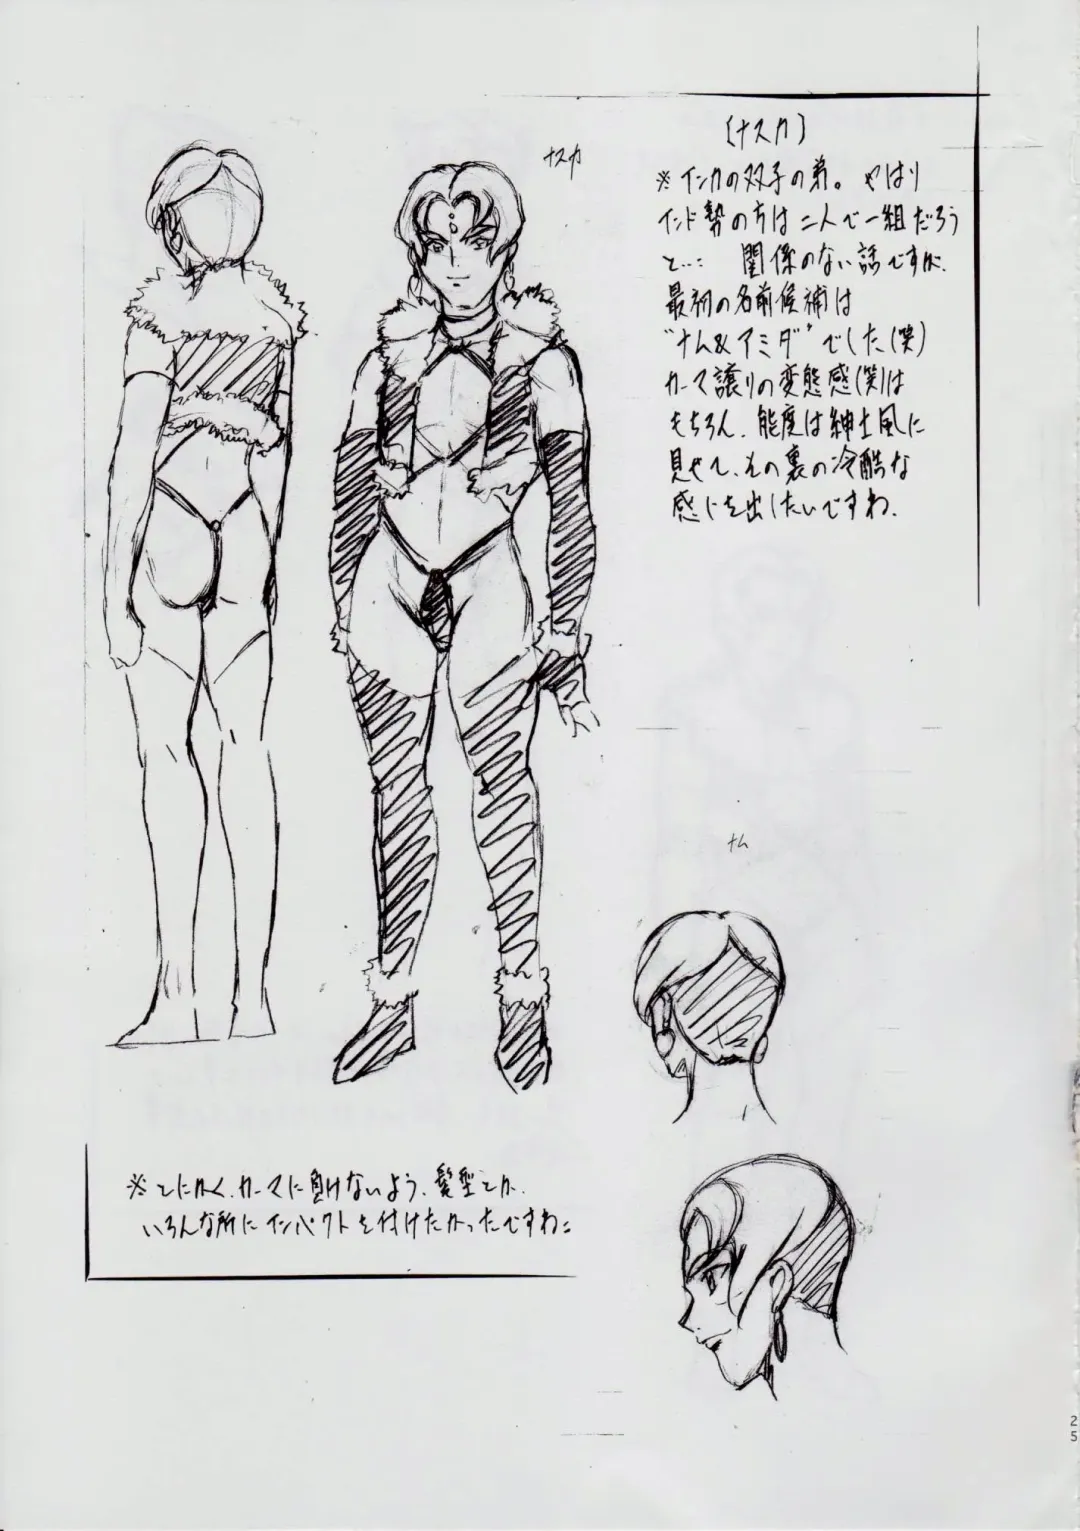 ナスカ
〔ナスカ〕
※インカの双子の弟。やはり
インド勢の方は二人で一組だろう
と…: 関係のない話ですが、
最初の名前候補は
"ナム&アミダ"でした(笑)
カーマ譲りの変態感(笑)は
もちろん、態度は紳士風に
見せて、その裏の冷酷な
感じを出したいですね。
ナム
※とにかく、カーマに負けないよう、髪型とか、
いろんな所にインパクトを付けたかったですね:
25